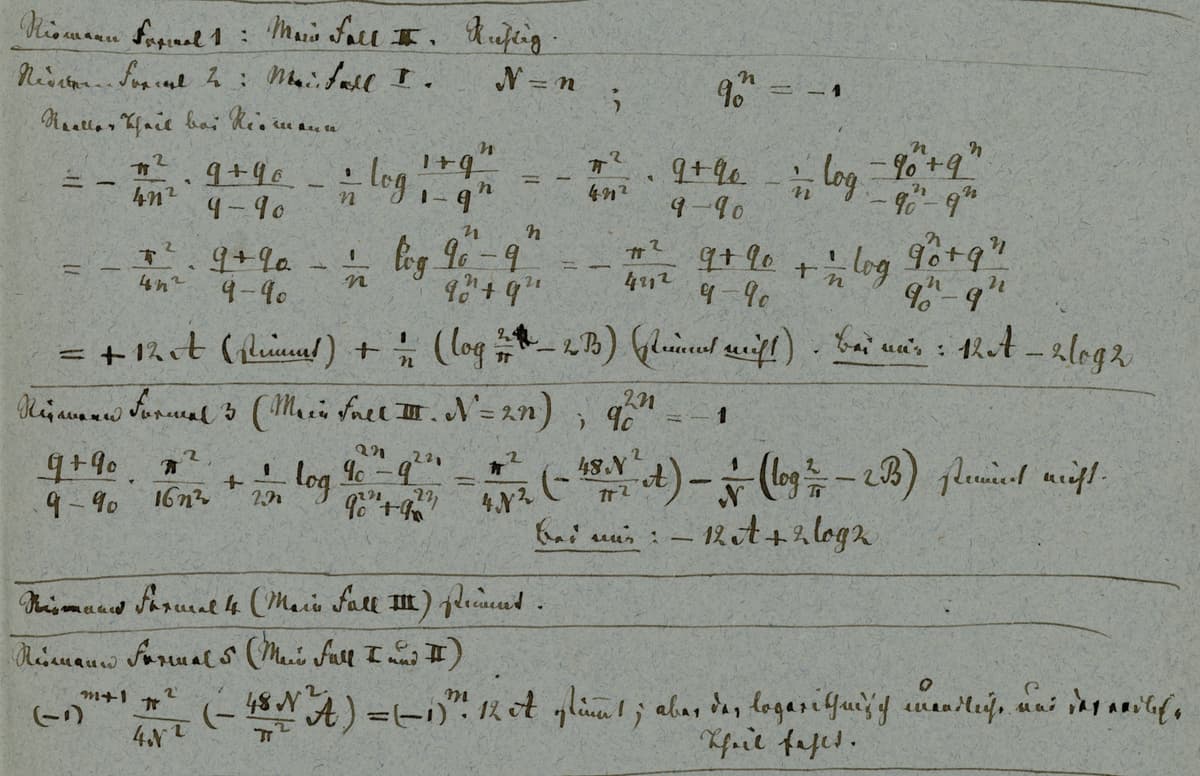 Riemann Formel 1 : Mein Fall II. Richtig.
Riemann Formel 2 : Mein Fall I. N = n ; q₀ⁿ = −1
Reeller Theil bei Riemann
= − π²/4n² · (q+q₀)/(q−q₀) − 1/n log (1+qⁿ)/(1−qⁿ) = − π²/4n² · (q+q₀)/(q−q₀) − 1/n log (−q₀ⁿ+qⁿ)/(−q₀ⁿ−qⁿ)
= − π²/4n² · (q+q₀)/(q−q₀) − 1/n log (q₀ⁿ−qⁿ)/(q₀ⁿ+qⁿ) = − π²/4n² (q+q₀)/(q−q₀) + 1/n log (q₀ⁿ+qⁿ)/(q₀ⁿ−qⁿ)
= + 12A (stimmt) + 1/n (log 2/π − 2B) (stimmt nicht). Bei mir : 12A − 2log2
Riemann Formel 3 (Mein Fall III. N = 2n) ; q₀²ⁿ = −1
(q+q₀)/(q−q₀) · π²/16n² + 1/2n log (q₀²ⁿ−q²ⁿ)/(q₀²ⁿ+q²ⁿ) = π²/4N² (− 48N²/π² A) − 1/N (log 2/π − 2B) stimmt nicht.
Bei mir : − 12A + 2log2
Riemann Formel 4 (Mein Fall III) stimmt.
Riemann Formel 5 (Mein Fall I und II)
(−1)ᵐ⁺¹ π²/4N² (− 48N²/π² A) = (−1)ᵐ · 12A stimmt; aber der logarithmisch unendliche und der endliche
Theil fehlt.